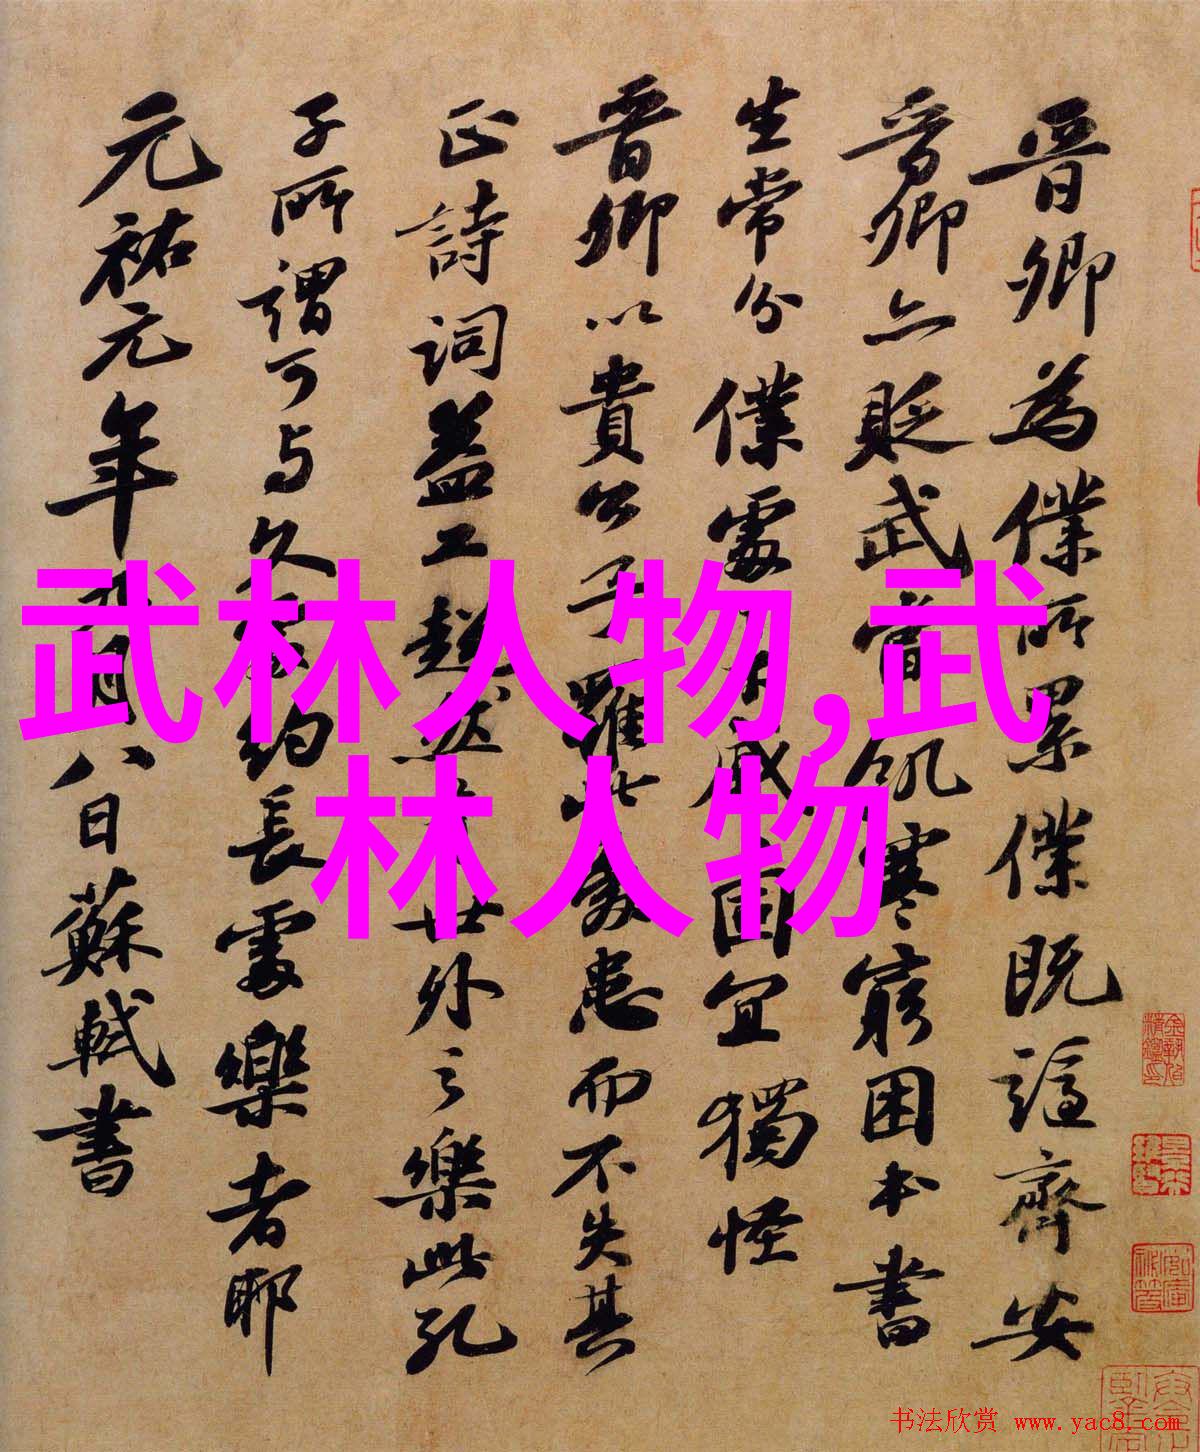 晋卿為僕所累僕既謫齊安
晋卿亦貶武當飢寒窮困本書
生常分僕處不戚固宜獨怪
晋卿以貴公子罹此患而不失其
正詩詞益工超然世外之樂此孔
子所謂可与久約長處樂者耶
元祐元年九月八日蘇軾書
武林人物,武
林人物
书法欣赏 www.yac8.com